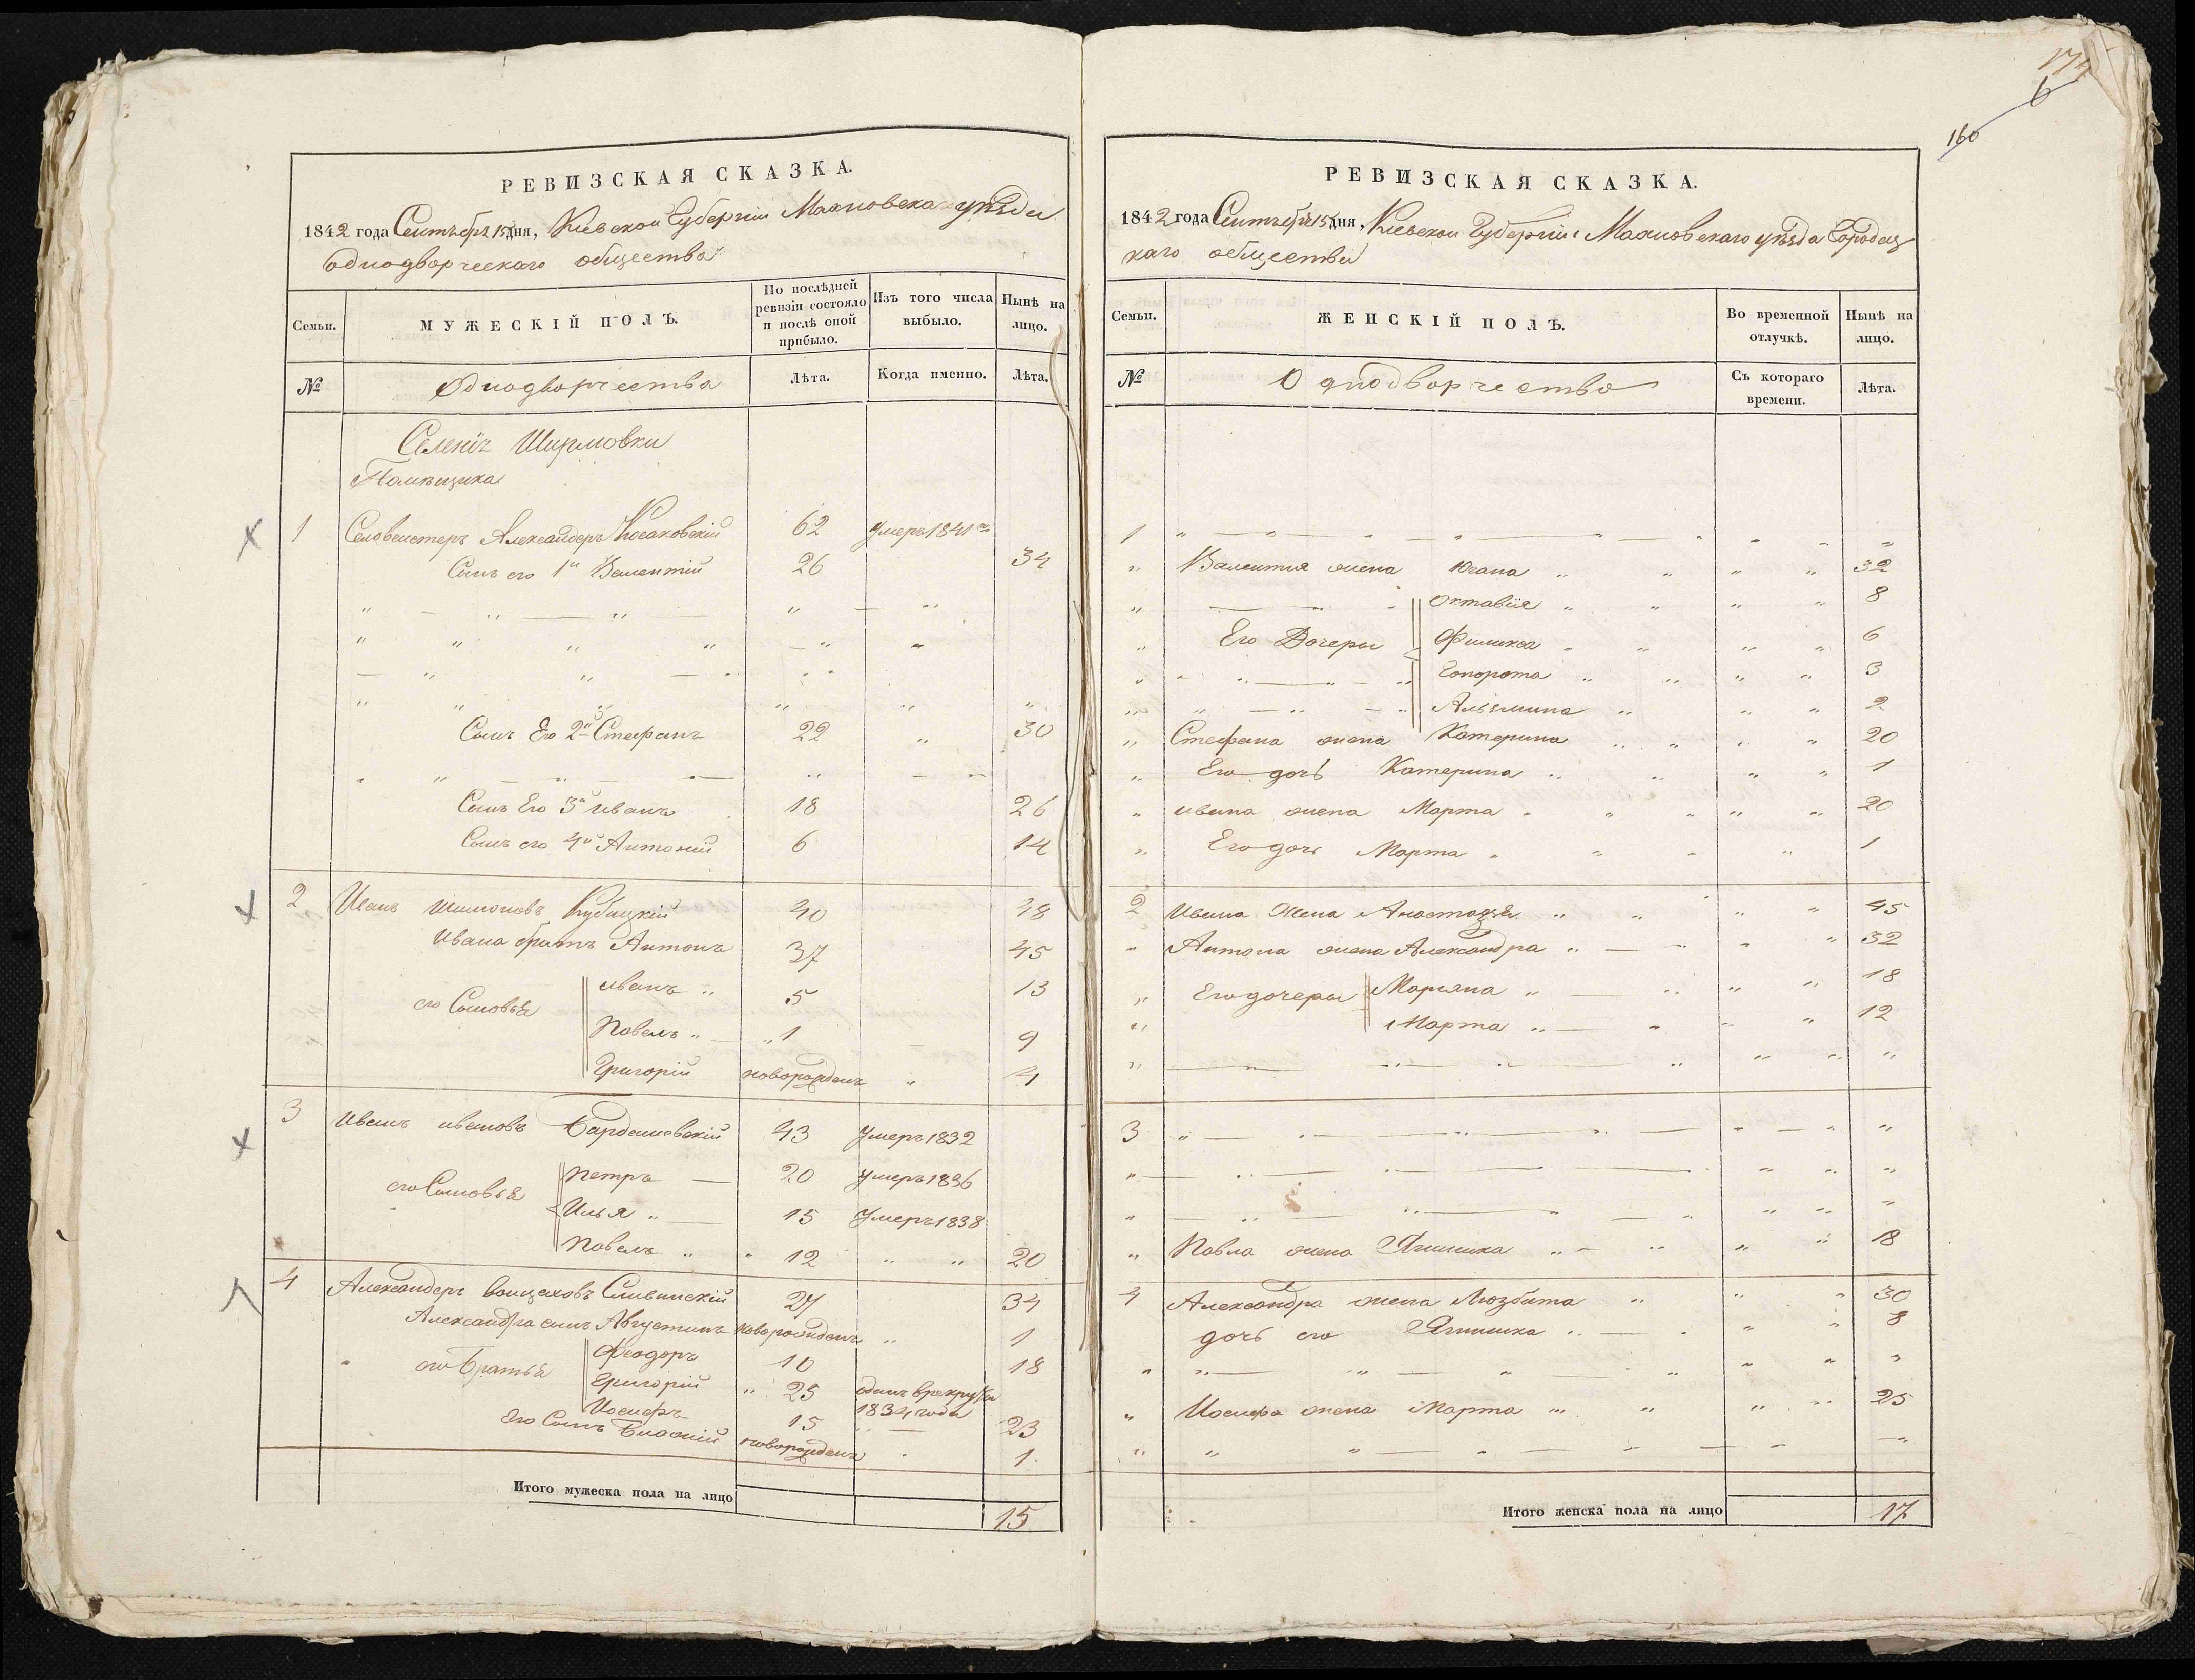 174
6
160
РЕВИЗСКАЯ СКАЗКА.
1842 года Сентебря 15 дня, Киевской Губернии Махновскаго уѣзда
однодворческаго общества
Семьи.
МУЖЕСКІЙ ПОЛЪ.
По послѣдней ревизіи состояло и послѣ оной прибыло.
Изъ того числа выбыло.
Нынѣ на лицо.
№
Однодворчества
Лѣта.
Когда именно.
Лѣта.
Селенія Ширмовки
Помѣщика
1 Селвестеръ Александеръ Косаковскій 62 Умеръ 1841го
Сынъ его 1й Валентій 26 34
Сынъ Его 2й Стефанъ 22 30
Сынъ Его 3й иванъ 18 26
Сынъ его 4й Антоній 6 14
2 Иванъ Шимоновъ Кубицкій 40 48
Ивана братъ Антонъ 37 45
иванъ 5 13
его Сыновья
Павелъ 1 9
Григорій новорожденъ 4
3 Иванъ ивановъ Бардашевскій 43 Умеръ 1832
Петръ 20 умеръ 1836
его Сыновья
Илья 15 Умеръ 1838
Павелъ 12 20
4 Александеръ Войцеховъ Сливинскій 27 34
Александра сынъ Августинъ новорожденъ 1
Феодоръ 10 18
его Братья
Григорій 25 сданъ врекруты
Иосифъ 15 1834 года 23
Его Сынъ новорожденъ 1
Итого мужеска пола на лицо 15
РЕВИЗСКАЯ СКАЗКА.
1842 года Сентебря 15 дня, Киевской Губерніи Махновскаго уѣзда
каго общества
Семьи.
ЖЕНСКІЙ ПОЛЪ.
Во временной отлучкѣ.
Нынѣ на лицо.
№
Однодворчество
Съ котораго времени.
Лѣта.
1
Валентия жена Югана 32
Октавія 8
Его Дочеры Филикса 6
Гонората 3
2
Стефана жена Катерина 20
Его дочь Катерина 1
ивана жена Марта 20
Его дочь Марта 1
2 Ивана Жена Анастазія 45
Антона жена Александра 32
Его дочеры Марьяна 18
Марта 12
3
Павла жена Агнишка 18
4 Александра жена Люзбита 30
дочь его Агнишка 8
Иосифа жена Марта 25
Итого женска пола на лицо 17